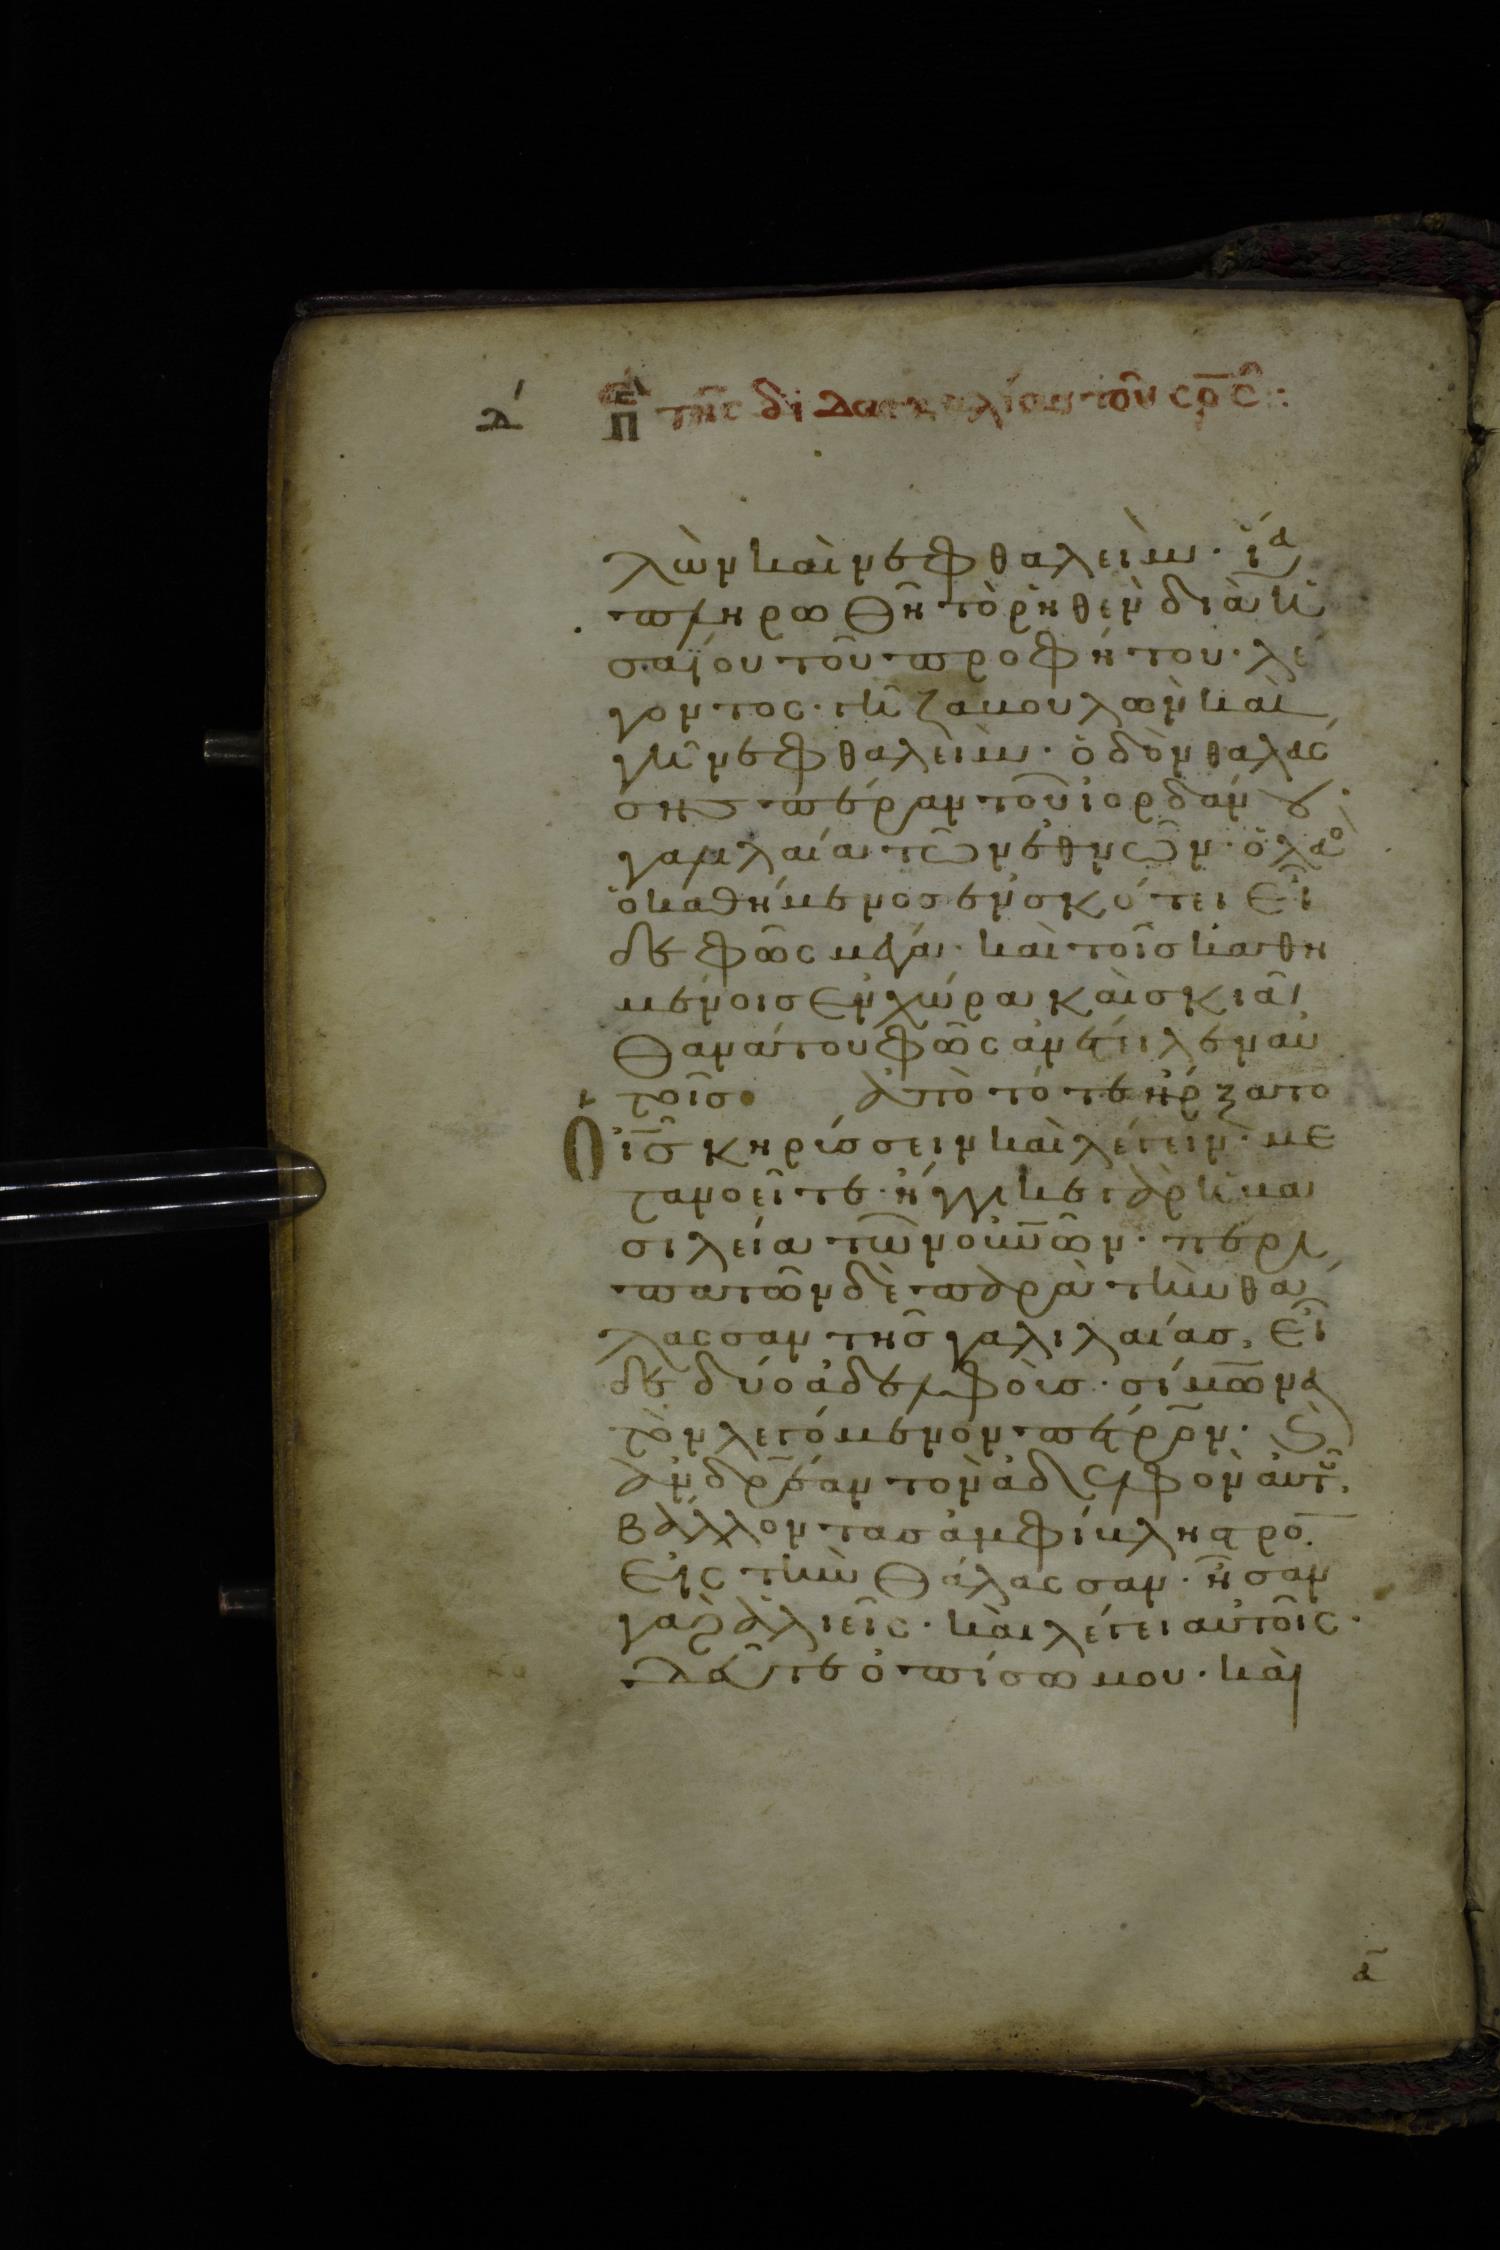 δ´ Περὶ τῆς διδασκαλίας τοῦ σρ̅ς :
λὼν καὶ νεφθαλείμ · ἵνα
πληρωθῆ τὸ ρηθὲν διὰ ἡ
σαΐου τοῦ προφήτου · λέ
γοντος · γῆ ζαβουλὼν καὶ
γῆ νεφθαλεὶμ · ὁδὸν θαλάσ
σης πέραν τοῦ ἰορδάνου ·
γαλιλαία τῶν ἐθνῶν · ὁ λαὸς
ὁ καθήμενος ἐν σκότει εἶ
δε φῶς μέγα · καὶ τοῖς καθη
μένοις ἐν χώρα καὶ σκιᾶ
θανάτου φῶς ἀνέτειλεν αὐ
τοῖς · ἀπὸ τότε ἤρξατο
Ὁ ι̅ς̅ κηρύσσειν καὶ λέγειν · με
τανοεῖτε · ἤγγικε γὰρ ἡ βα
σιλεία τῶν οὐ̅ν̅ῶν · περι
πατῶν δὲ παρὰ τὴν θά
λασσαν τῆς γαλιλαίας, εἶ
δε δύο ἀδελφοὺς · σίμωνα
τὸν λεγόμενον πέτρον · καὶ
ἀνδρέαν τὸν ἀδελφὸν αὐτοῦ,
βάλλοντας ἀμφίβληστρο̅
εἰς τὴν θάλασσαν · ἦσαν
γὰρ ἁλιεῖς · καὶ λέγει αὐτοῖς ·
δεῦτε ὀπίσω μου · καὶ
α̅